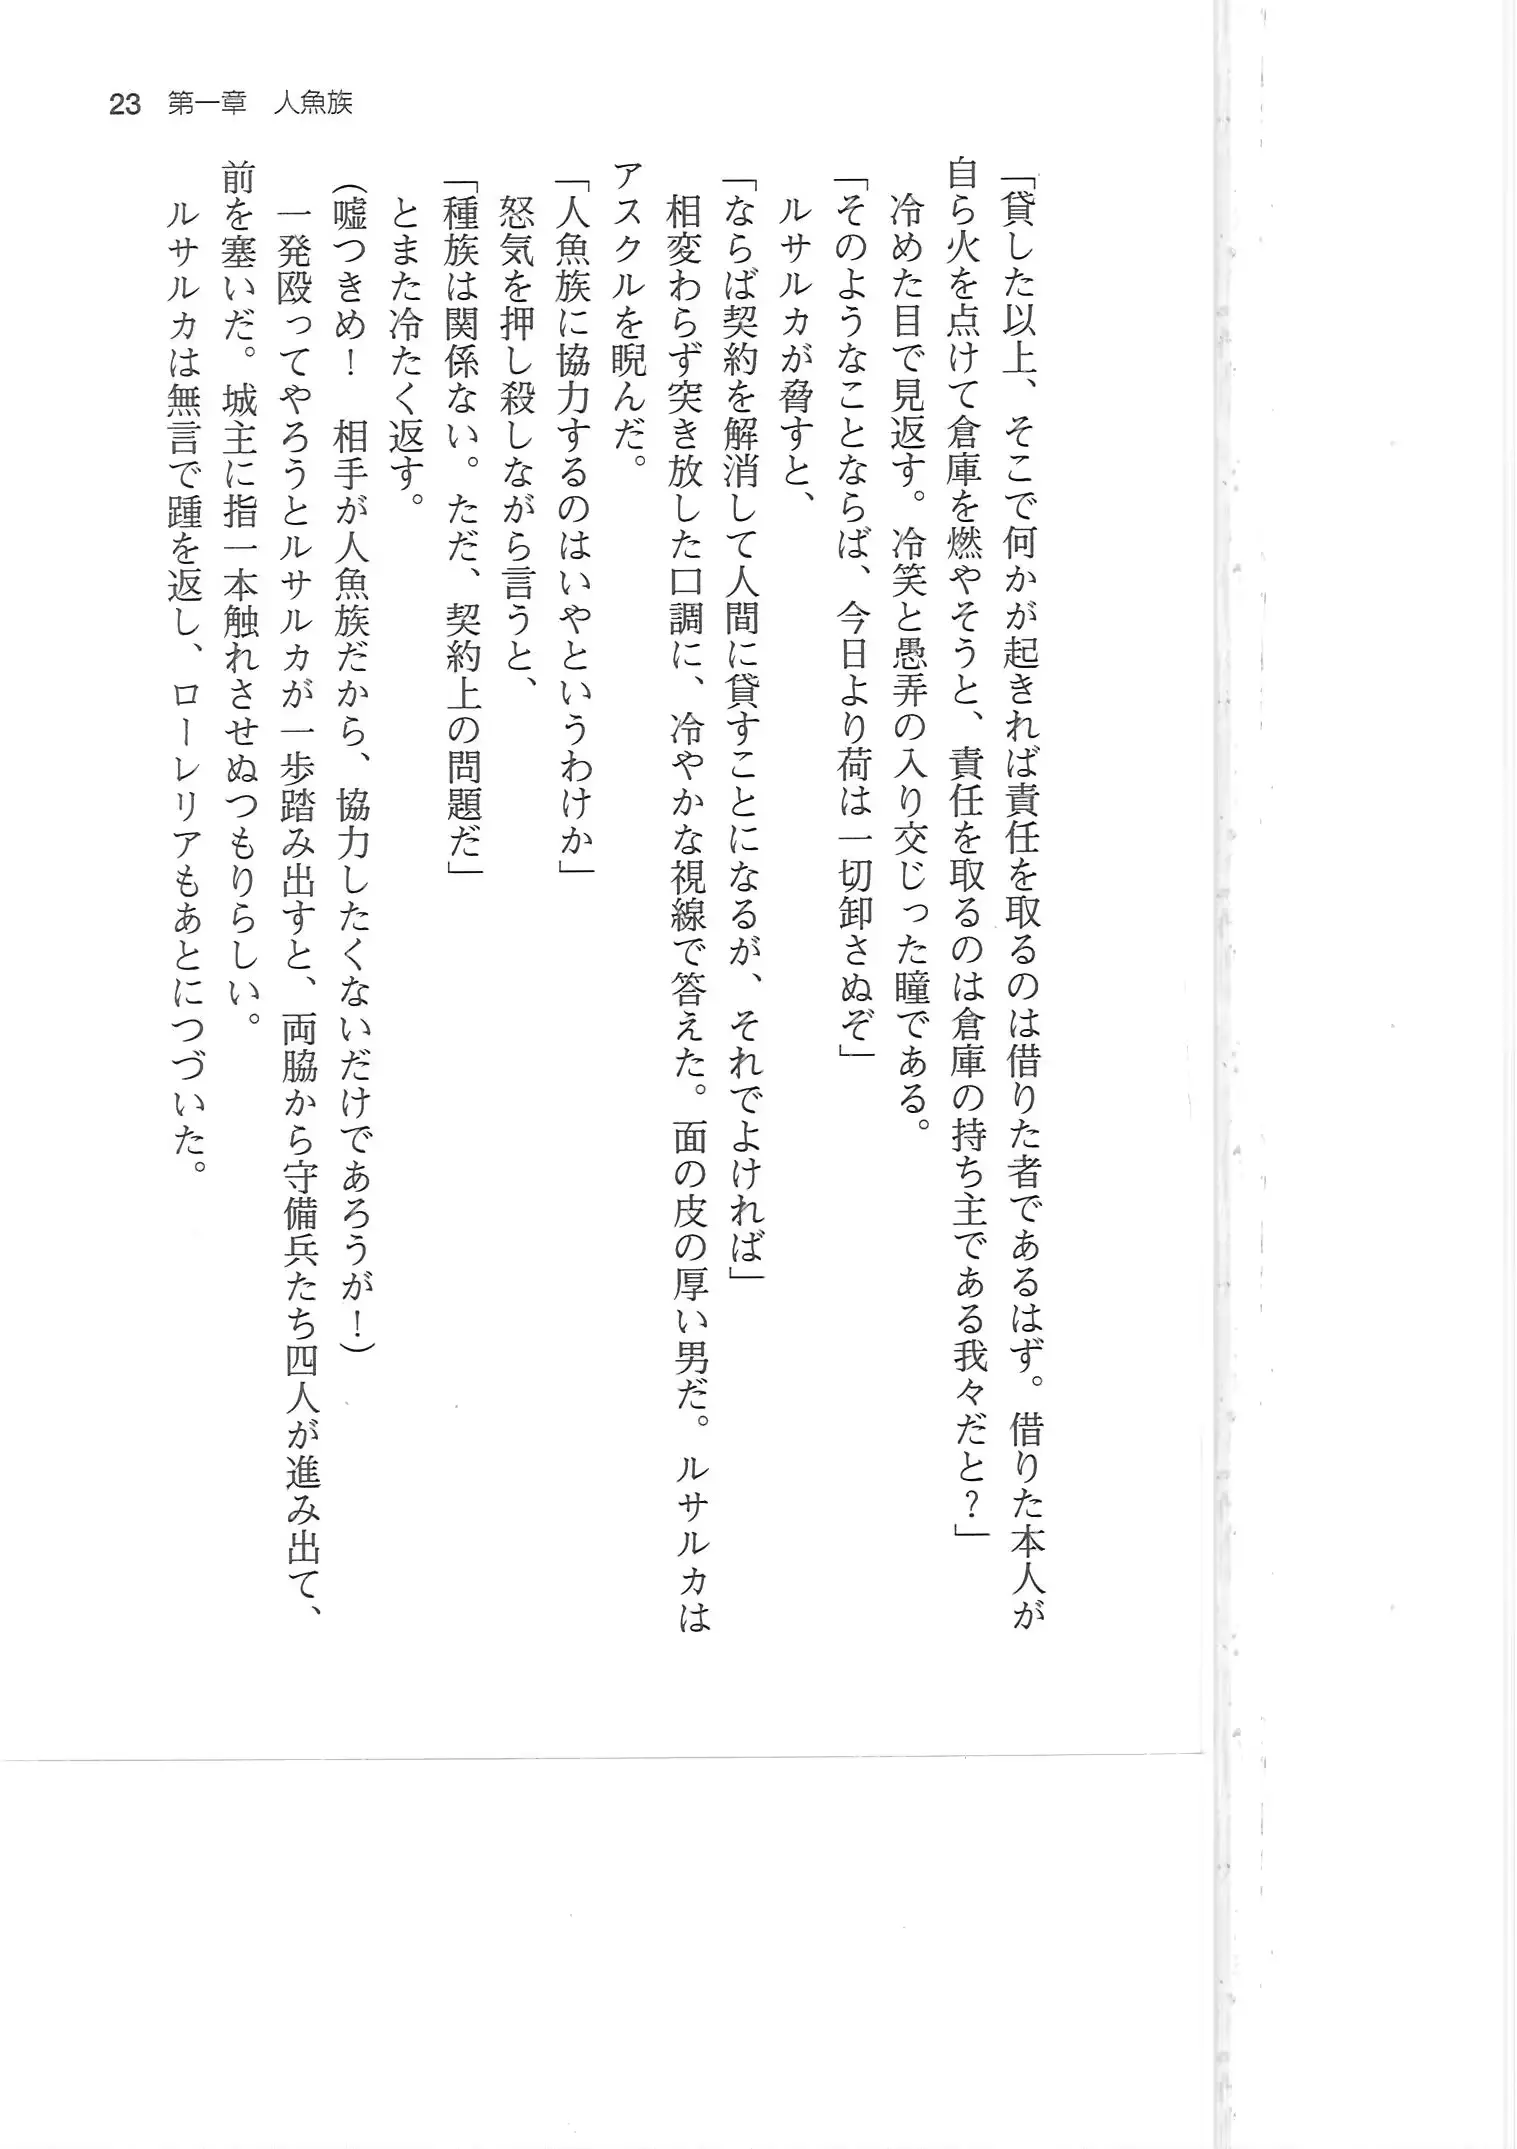 23 第一章　人魚族
「貸した以上、そこで何かが起きれば責任を取るのは借りた者であるはず。借りた本人が
自ら火を点けて倉庫を燃やそうと、責任を取るのは倉庫の持ち主である我々だと？」
　冷めた目で見返す。冷笑と愚弄の入り交じった瞳である。
「そのようなことならば、今日より荷は一切卸さぬぞ」
　ルサルカが脅すと、
「ならば契約を解消して人間に貸すことになるが、それでよければ」
　相変わらず突き放した口調に、冷やかな視線で答えた。面の皮の厚い男だ。ルサルカは
アスクルを睨んだ。
「人魚族に協力するのはいやというわけか」
　怒気を押し殺しながら言うと、
「種族は関係ない。ただ、契約上の問題だ」
　とまた冷たく返す。
（嘘つきめ！　相手が人魚族だから、協力したくないだけであろうが！）
　一発殴ってやろうとルサルカが一歩踏み出すと、両脇から守備兵たち四人が進み出て、
前を塞いだ。城主に指一本触れさせぬつもりらしい。
　ルサルカは無言で踵を返し、ローレリアもあとにつづいた。